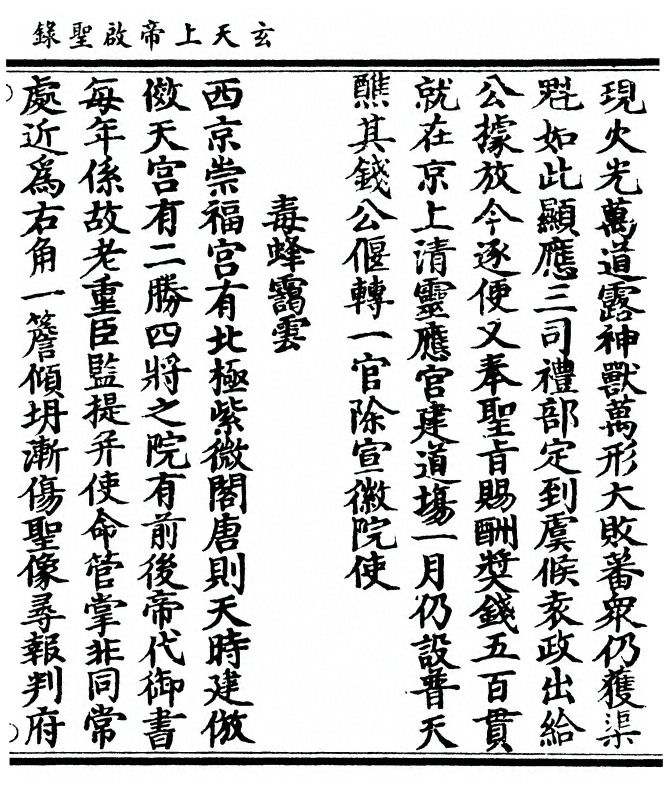 玄天上帝啟聖錄
現火光萬道露神獸萬形大敗蕃眾仍獲渠
魁如此顯應三司禮部定到虞候袁政出給
公據放令逐便又奉聖旨賜酬獎錢五百貫
就在京上清靈應宮建道場一月仍設普天
醮其錢公偃轉一官除宣徽院使
毒蜂靄雲
西京崇福宮有北極紫微閣唐則天時建倣
傚天宮有二勝四將之院有前後帝代御書
每年係故老重臣監提弁使命管掌非同常
處近為右角一簷傾坍漸傷聖像尋報判府